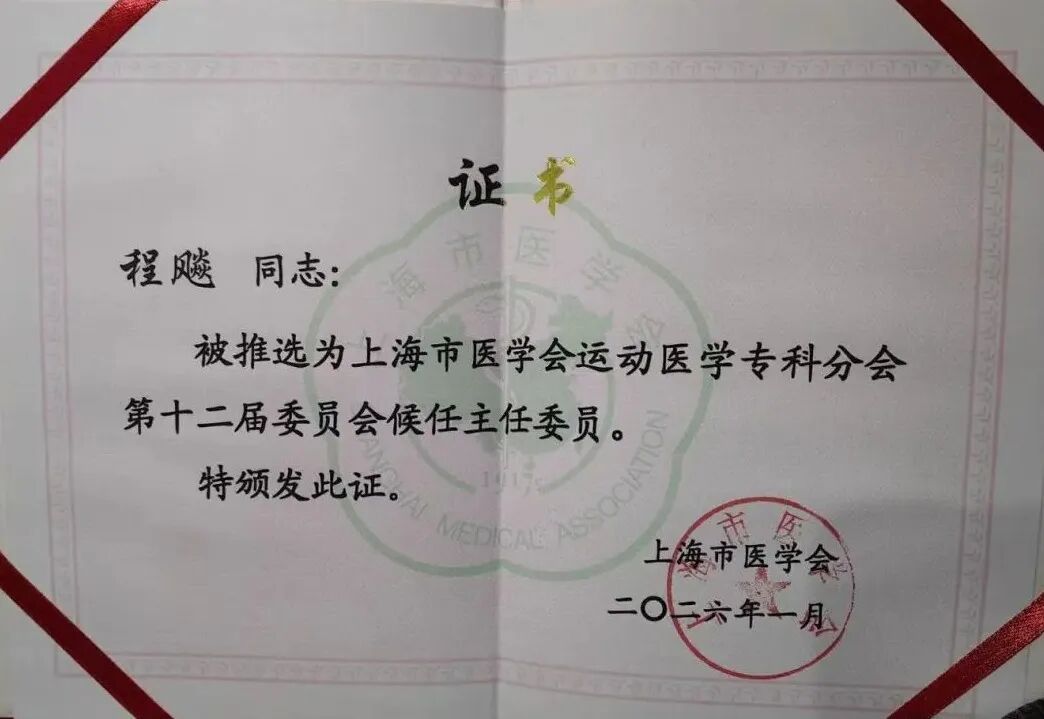 证书
程飚 同志：
被推选为上海市医学会运动医学专科分会
第十二届委员会候任主任委员。
特颁发此证。
上海市医学会
二〇二六年一月
上海市医学会
SHANGHAI MEDICAL ASSOCIATION
1917
上海市医学会